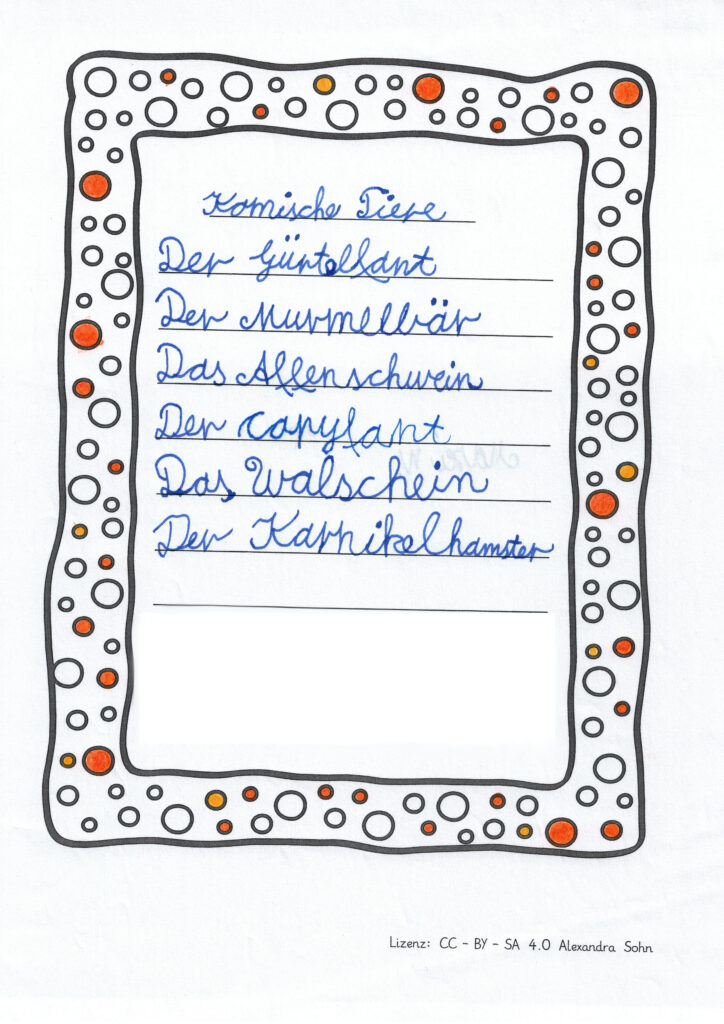 Komische Tiere
Der Gürtellant
Der Murmelbär
Das Affenschwein
Der Capyfant
Das Walschein
Der Karnikelhamster
Lizenz: CC - BY - SA 4.0 Alexandra Sohn